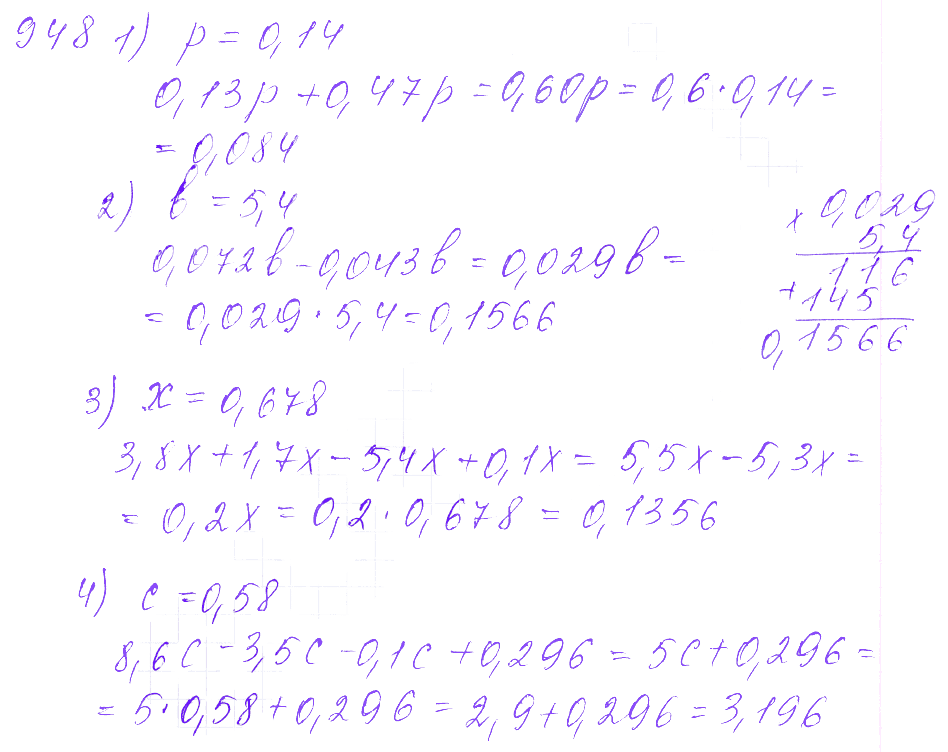 948 1) p = 0,14
0,13p + 0,47p = 0,60p = 0,6 · 0,14 =
= 0,084
2) b = 5,4
0,072b - 0,043b = 0,029b =
= 0,029 · 5,4 = 0,1566
× 0,029
5,4
116
+ 145
0,1566
3) x = 0,678
3,8x + 1,7x - 5,4x + 0,1x = 5,5x - 5,3x =
= 0,2x = 0,2 · 0,678 = 0,1356
4) c = 0,58
8,6c - 3,5c - 0,1c + 0,296 = 5c + 0,296 =
= 5 · 0,58 + 0,296 = 2,9 + 0,296 = 3,196